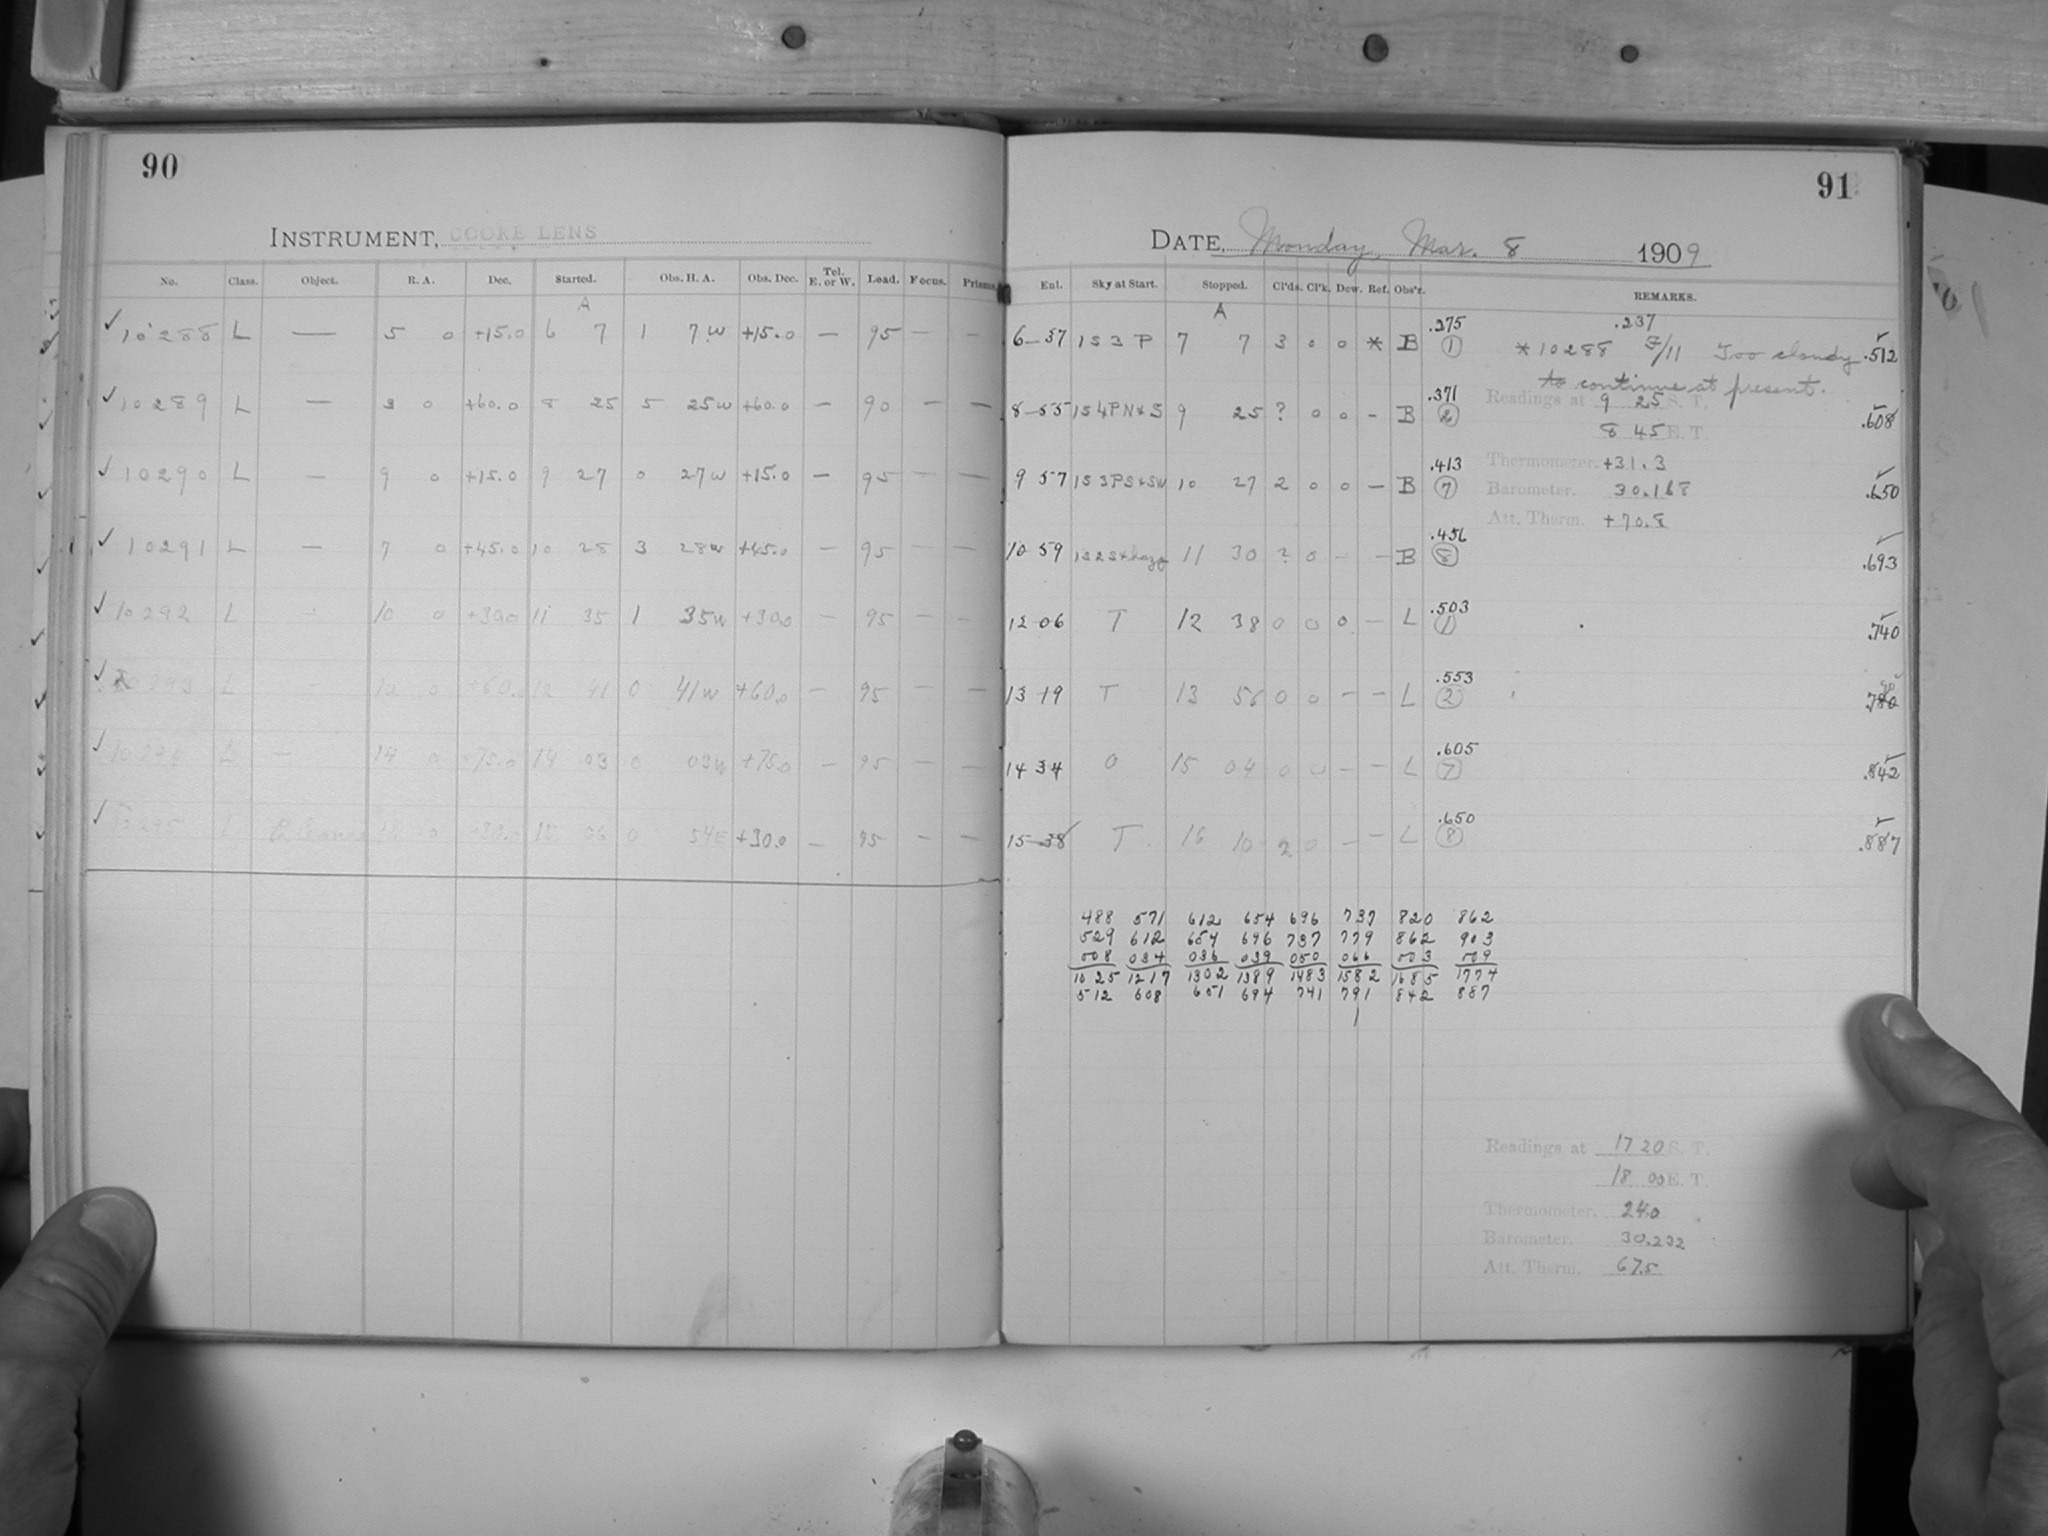 90
INSTRUMENT, COOKE LENS
No. Class. Object. R. A. Dec. Started. Obs. H. A. Obs. Dec. Tel. E. or W. Load. Focus. Prisms.
A
✓ 10288 L — 5 0 +15.0 6 7 1 7w +15.0 — 95 — —
✓ 10289 L — 3 0 +60.0 8 25 5 25w +60.0 — 90 — —
✓ 10290 L — 9 0 +15.0 9 27 0 27w +15.0 — 95 — —
✓ 10291 L — 7 0 +45.0 10 28 3 28w +45.0 — 95 — —
✓ 10292 L — 10 0 +30.0 11 35 1 35w +30.0 — 95 — —
✓ 10293 L 12 0 +60.0 12 41 0 41w +60.0 — 95 — —
✓ 10294 L — 14 0 +75.0 14 03 0 03w +75.0 — 95 — —
✓ 10295 L 16 0 +30.0 15 06 0 54E +30.0 — 95 — —
91
DATE, Monday, Mar. 8 1909
Exl. Sky at Start. Stopped. Cl'ds. Cl'k. Dew. Ref. Obs'r. REMARKS.
A
6-37 1S 3 P 7 7 3 0 0 * B .275 ① .237 * 10288 F/11 Too cloudy .512
to continue at present.
8-55 1S 4P N & S 9 25 ? 0 0 - B .371 ② Readings at 9 25 S. T. .608
8 45 E. T.
9 57 1S 3P S & SW 10 27 2 0 0 — B .413 ⑦ Thermometer. +31.3 .650
Barometer. 30.168
Att. Therm. +70.8
10 59 1S 2S & hazy 11 30 ? 0 — — B .456 ⑧ .693
12 06 T 12 38 0 0 0 — L .503 ① .740
13 19 T 13 56 0 0 — — L .553 ②
14 34 0 15 04 0 0 — — L .605 ⑦ .842
15-38 T 16 10 2 0 — — L .650 ⑧ .887
488 571 612 654 696 737 820 862
529 612 654 696 737 779 862 903
008 034 036 039 050 066 003 009
1025 1217 1302 1389 1483 1582 1685 1774
512 608 651 694 741 791 842 887
1
Readings at 17 20 S. T.
18 00 E. T.
Thermometer. 24.0
Barometer. 30.232
Att. Therm. 67.5